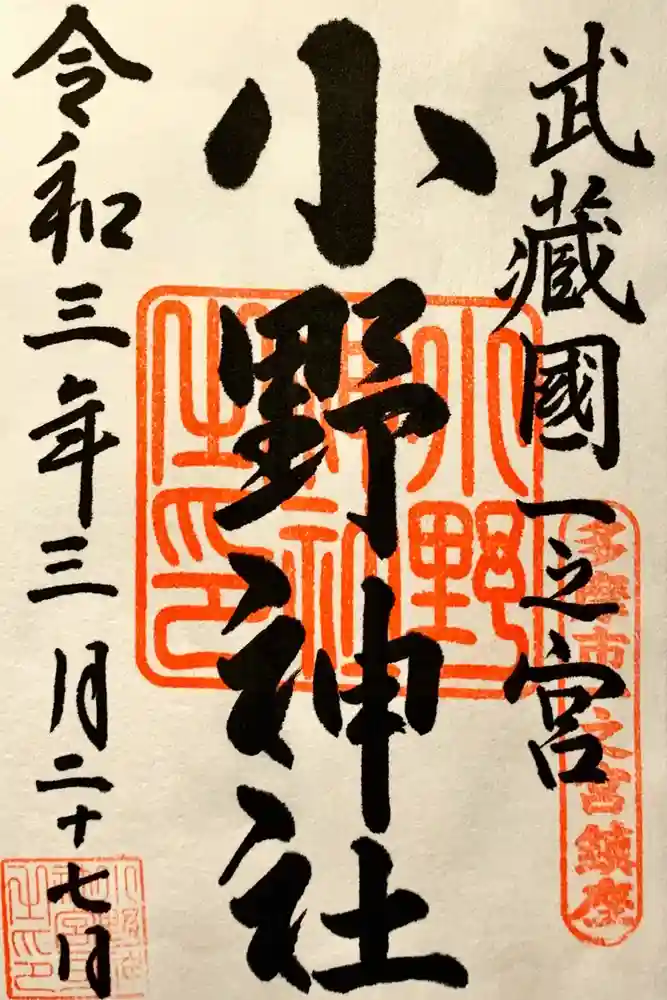 武藏國一之宮
多摩市一之宮鎮座
小野神社
小野神社之印
令和三年三月二十七日
小野神社宮司之印